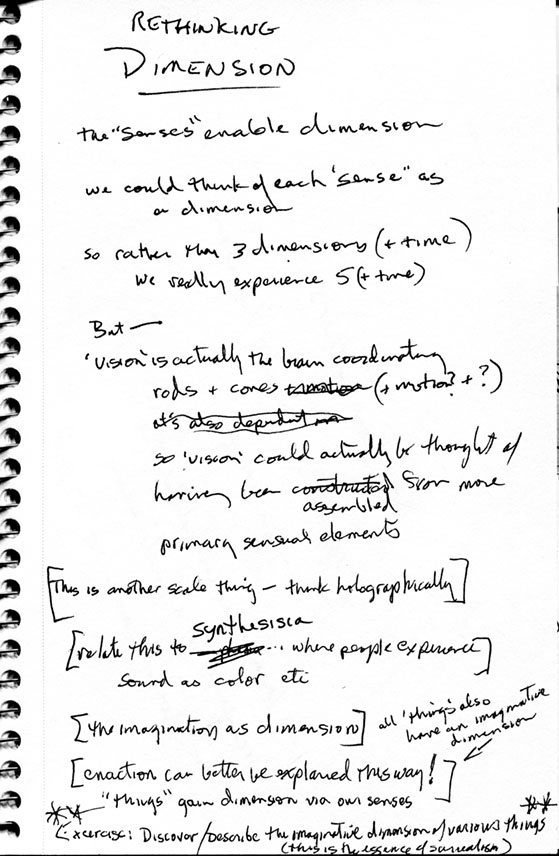 RETHINKING
DIMENSION
the "senses" enable dimension
we could think of each 'sense" as
a dimension
so rather than 3 dimensions (+ time)
we really experience 5 (+ time)
But —
'vision' is actually the brain coordinating
rods + cones (+ motion? + ?)
it's also dependent
so 'vision' could actually be thought of
having been constructed from more
assembled
primary sensual elements
[This is another scale thing — think holographically]
synthesisia
[relate this to ... where people experience]
sound as color etc
[the imagination as dimension] all 'things' also
have an imaginative
dimension
[enaction can better be explained this way!]
"things" gain dimension via our senses
Exercise: Discover/Describe the imaginative dimension of various things
(this is the essence of surrealism)